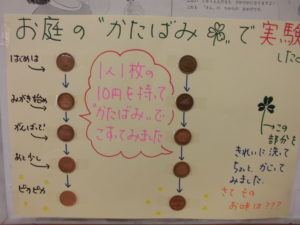 お庭の"かたばみ"で実験
した
はじめは
みがき始め
がんばって!
あと少し
ピカピカ
1人1枚の
10円を持って
"かたばみ"で
こすってみました
この
部分を
きれいに洗って
ちょっとかじって
みました。
さて その
お味は???